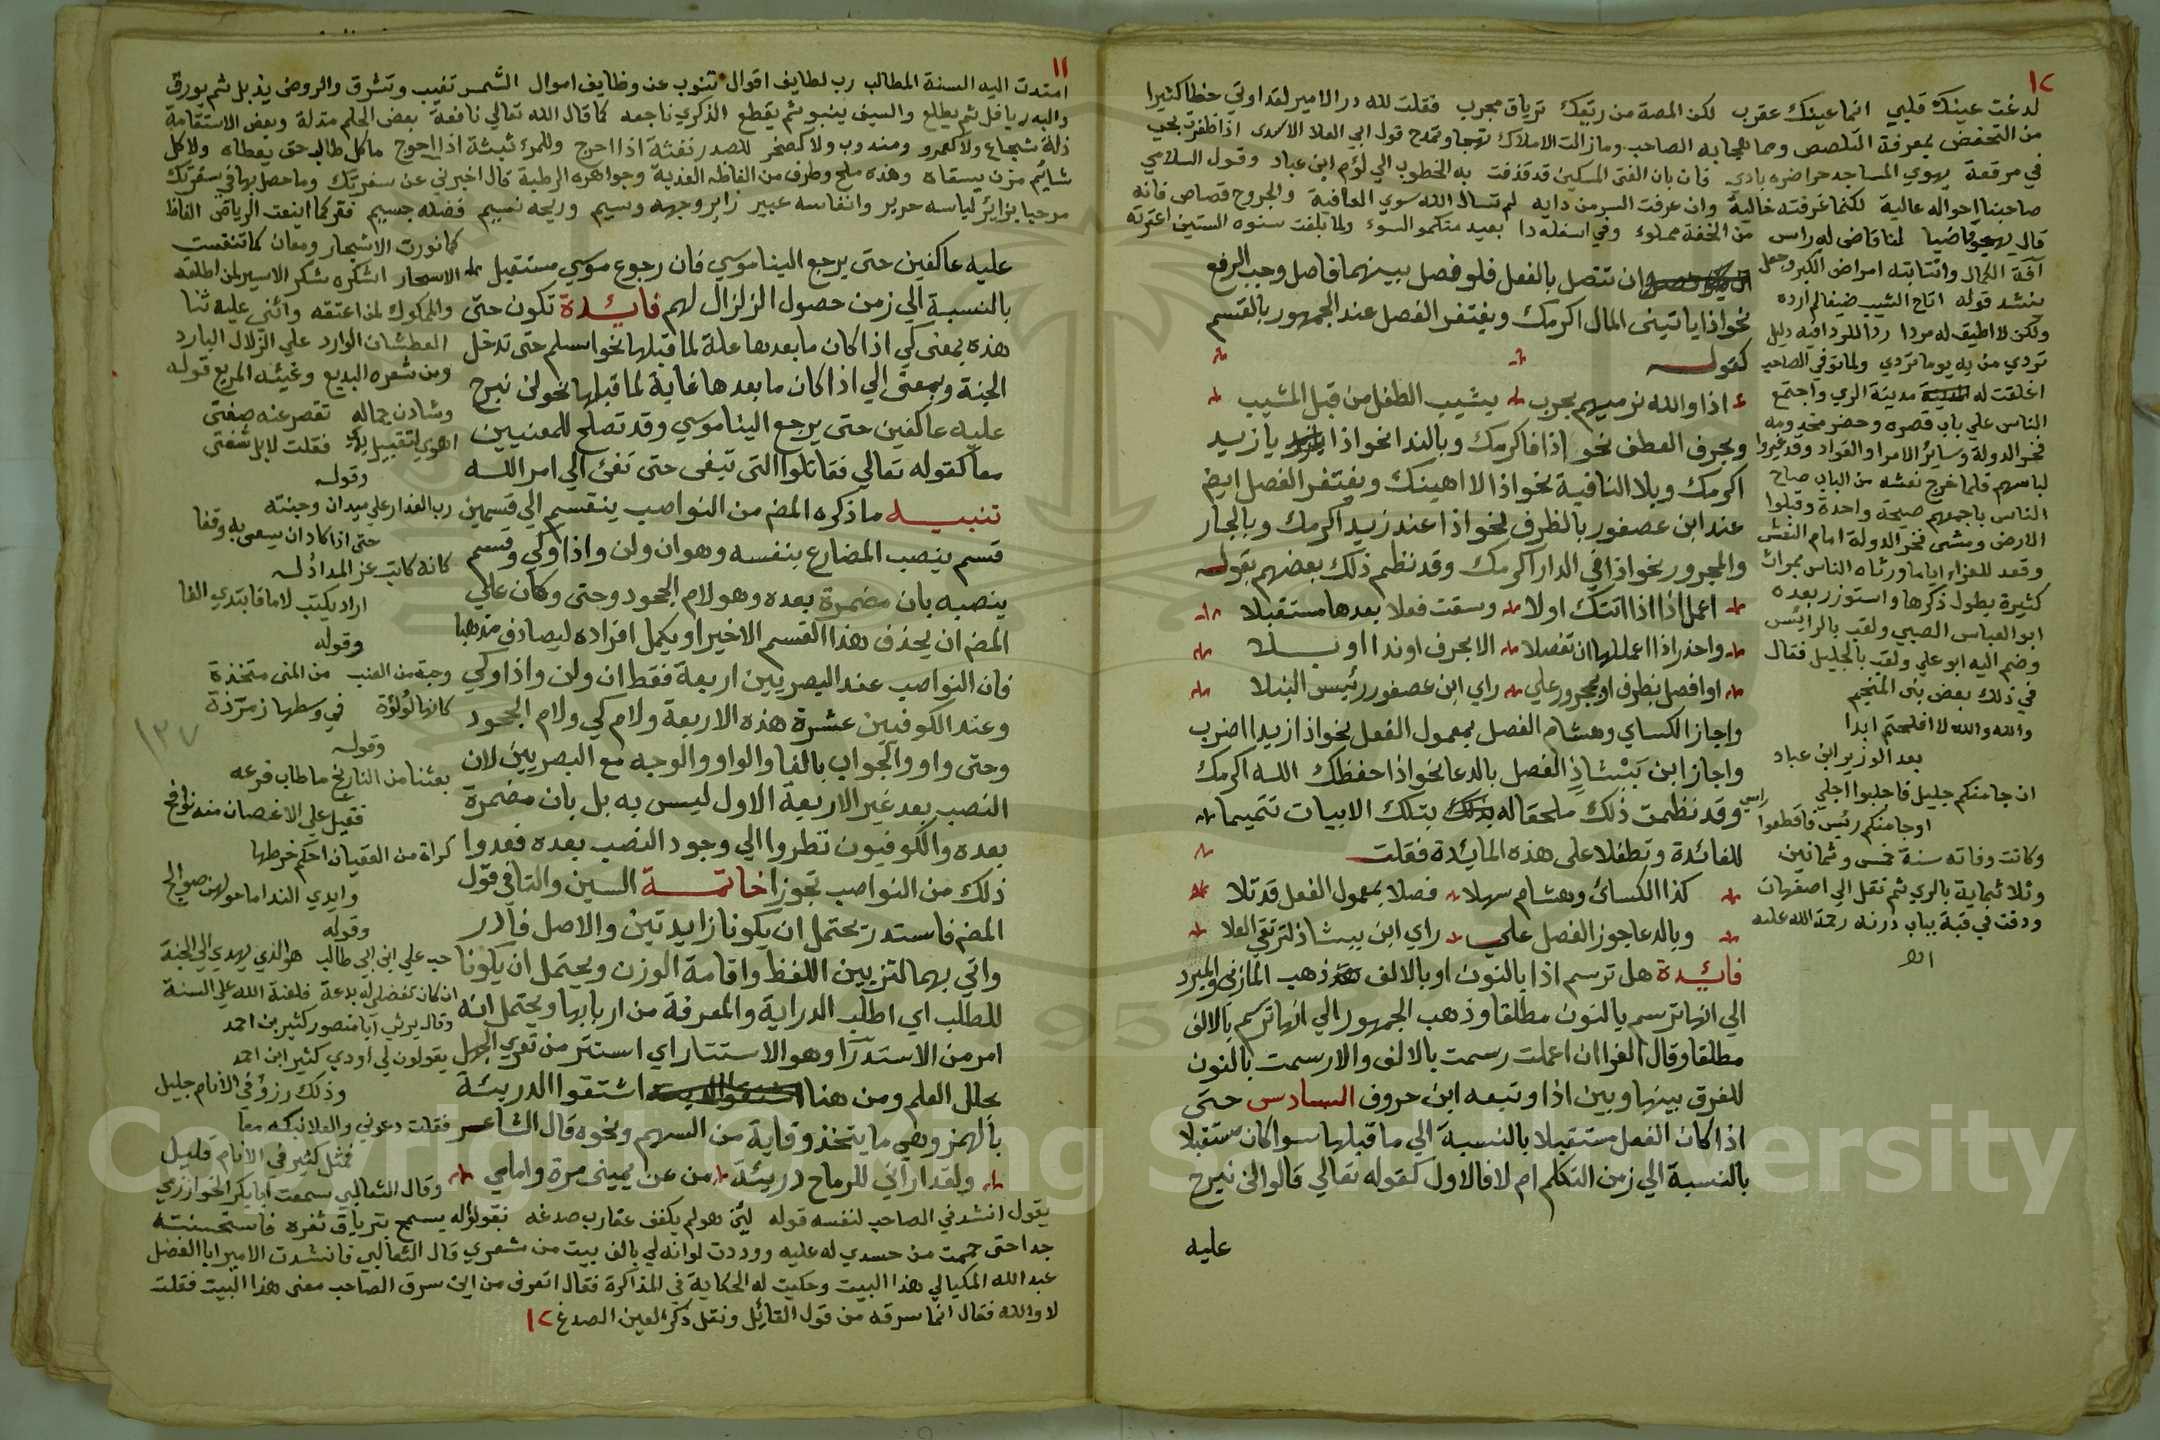 ١٢
لدغت عينك قلبي انما عينك عقرب لكن المصة من ريقك ترياق مجرب فقلت لله در الامير لقد اوتي حظا كثيرا
من التحفض بمعرفة التلصص ومما هجا به الصاحب وما زالت الاملاك تهجا وتمدح قول ابي العلا الاسدى اذا ظفرت بحب
في مرقعة يهوي المساجد حرا ضره بادي فان بان الفتى المسكين قد قذفت به الخطوب الي لؤم ابن عباد وقول السلامي
صاحبنا احواله عالية لكنما غرفته خالية وان عرفت السر من دايه لم تسال الله سوي العافية والجروح قصاص فانه
قال يهجو قاضيا لنا قاضى له راس من الخفة مملوء وفي اسفله دا بعيد منكمو السوء ولما بلغت سنوه الستين اعترته
آفة الكمال وانتابته امراض الكبر وجعل
ينشد قوله اتاح الشيب ضيفا لم ارده
ولكن لا اطيق له مردا ردا للردا فيه دليل
تردي من به يوما تردي ولما توفي الصاحب
اغلقت له مدينة الري واجتمع
الناس علي باب قصره وحضر مخدومه
فخر الدولة وسائر الامرا والقواد وقد غيروا
لباسهم فلما خرج نعشه من الباب صاح
الناس باجمعهم صيحة واحدة وقبلوا
الارض ومشى فخر الدولة امام النعش
وقعد للعزاء اياما ورثاه الناس بمراث
كثيرة يطول ذكرها واستوزر بعده
ابو العباس الضبي ولقب بالرايس
وضم اليه ابو علي ولقب بالجليل فقال
في ذلك بعض بنى المنجم
والله والله لا افلحتم ابدا
بعد الوزير ابن عباد
ان جا منكم جليل فاجلبوا اجلي
او جا منكم رئيس فاقطعوا راسي
وكانت وفاته سنة خمس وثمانين
وثلاثماية بالري ثم نقل الي اصفهان
ودفن في قبة بباب درنه رحمة الله عليه
ان تتصل بالفعل فلو فصل بينهما فاصل وجب الرفع
نحو اذا ياتينى المال اكرمك ويغتفر الفصل عند الجمهور بالقسم
كقوله
اذا والله نرميهم بحرب يشيب الطفل من قبل المشيب
وبحرف العطف نحو اذا فاكرمك وبالندا نحو اذا يا زيد
اكرمك وبلا النافية نحو اذا لا اهينك ويغتفر الفصل ايض
عند ابن عصفور بالظرف نحو اذا عند زيد اكرمك وبالجار
والمجرور نحو اذا في الدار اكرمك وقد نظم ذلك بعضهم بقوله
اعمل اذا اذا اتتك اولا وسقت فعلا بعدها مستقبلا
واحذر اذا اعملتها ان تفصلا الا بحرف او ندا او بلا
او افصل بظرف او بمجرور علي راي ابن عصفور رئيس النبلا
واجاز الكساي وهشام الفصل بمعمول الفعل نحو اذا زيدا اضرب
واجاز ابن بَبْشَاذِ الفصل بالدعا نحو اذا حفظك الله اكرمك
وقد نظمت ذلك ملحقا له بتلك الابيات تتميما
للفائدة وتطفلا على هذه المايدة فقلت
كذا الكسائ وهشام سهلا فصلا بمعمول الفعل قد تلا
وبالدعا جوز الفصل علي راي ابن ببشاذ لترتقي العلا
فائدة هل ترسم اذا بالنون او بالالف ذهب المازني والمبرد
الي انها ترسم بالنون مطلقا وذهب الجمهور الي انها ترسم بالالف
مطلقا وقال الفرا ان اعملت رسمت بالالف والا رسمت بالنون
للفرق بينها وبين اذا وتبعه ابن حروف السادس حتى
اذا كان الفعل مستقبلا بالنسبة الي ما قبلها سوا كان مستقبلا
بالنسبة الي زمن التكلم ام لا فالاول كقوله تعالي قالوا لن نبرح
عليه
١١
امتدت اليه السنة المطالب رب لطايف اقوال تنوب عن وظايف اموال الشمس تغيب وتشرق والروض يذبل ثم يورق
والبدر يافل ثم يطلع والسيف ينبو ثم يقطع الذكري ناجعه كما قال الله تعالي نافعة بعض الحلم مذلة وبعض الاستقامة
ذلة شجاع ولا كعمرو ومندوب ولا كصخر للصدر نفثة اذا احرج وللمرء نبشة اذا احوج ما كل طالب حق يعطاه ولا كل
شائم مزن يسقاه وهذه ملح وطرف من الفاظه العذبة وجواهره الرطبة قال اخبرني عن سفرتك وما حصل بها في سفرتك
مرحبا بزائر لباسه حرير وانفاسه عبير زاير وجهه وسيم وريحه نسيم فضله جسيم فقر كما اينعت الرياض الفاظ
كما نورت الاشجار ومعان كما تنفست
الاسحار اشكره شكر الاسير لمن اطلقه
والمملوك لمن اعتقه واثنى عليه ثنا
العطشان الوارد علي الزلال البارد
ومن شعره البديع وغيثه المريع قوله
وشادن جماله تقصر عنه صفتى
اهوي لتقبيل يدي فقلت لا بل شفتى
وقوله
رب العذار علي ميدان وجنته
حتى اذا كاد ان يسعى به وقفا
كانه كاتب عز المداد له
اراد يكتب لاما فابتدي الفا
وقوله
وحبة من العنب من المنى متخذة
كانها لؤلؤة في وسطها زمرذة
وقوله
بعثنا من النارنج ما طاب فرعه
فقيل علي الاغصان منه نوافج
كراة من العقيان احكم خرطها
وايدي الندا ما حولهن صوالج
وقوله
حب علي ابن ابي طالب هو الذي يهدي الي الجنة
ان كان تفضيلي له بدعة فلعنة الله علي السنة
وقال يرثي ابا منصور كثير بن احمد
يقولون لي اودي كثير ابن احمد
وذلك رزؤ في الانام جليل
فقلت دعوني والعلا نبكه معا
فمثل كثير في الانام قليل
وقال الثعالبي سمعت ابا بكر الخوارزمي
عليه عاكفين حتى يرجع الينا موسي فان رجوع موسي مستقبل
بالنسبة الي زمن حصول الزلزال لهم فائدة تكون حتى
هذه بمعنى كي اذا كان ما بعدها علة لما قبلها نحو اسلم حتى تدخل
الجنة وبمعنى الي اذا كان ما بعدها غاية لما قبلها نحو لن نبرح
عليه عاكفين حتى يرجع الينا موسي وقد تصلح للمعنيين
معا كقوله تعالي فقاتلوا التى تبغى حتى تفئ الي امر الله
تنبيه ما ذكره المض من النواصب ينقسم الي قسمين
قسم ينصب المضارع بنفسه وهو ان ولن واذا وكي وقسم
ينصبه بان مضمرة بعده وهو لام الجحود وحتى وكان علي
المض ان يحذف هذا القسم الاخير او يكمل افراده ليصادف مذهبا
فان النواصب عند البصريين اربعة فقط ان ولن واذا وكي
وعند الكوفيين عشرة هذه الاربعة ولام كي ولام الجحود
وحتى واو والجواب بالفا والواو والوجه مع البصريين لان
النصب بعد غير الاربعة الاول ليس به بل بان مضمرة
بعده والكوفيون نظروا الي وجود النصب بعده فعدوا
ذلك من النواصب تجوزا خاتمة السين والتا في قول
المض فاستدر يحتمل ان يكونا زايدتين والاصل فادر
واتي بهما لتزيين اللفظ واقامة الوزن ويحتمل ان يكونا
للطلب اي اطلب الدراية والمعرفة من اربابها ويحتمل انه
امر من الاستدرآ وهو الاستتار اي استتر من تعري الجهل
بحلل العلم ومن هنا اشتقوا الدريئة
بالهمز وهي ما يتخذ وقاية من السهم ونحوه قال الشاعر
ولقد اراني للرماح دريئة من عن يمينى مرة وامامي
يقول انشدني الصاحب لنفسه قوله لئن هو لم يكفف عقارب صدغه فقولوا له يسمح بترياق ثغره فاستحسنته
جدا حتى حممت من حسدي له عليه ووددت لو انه لي بالف بيت من شعري قال الثعالبي فانشدت الامير ابا الفضل
عبد الله المكيالي هذا البيت وحكيت له الحكاية في المذاكرة فقال اتعرف من اين سرق الصاحب معنى هذا البيت فقلت
لا والله فقال انما سرقه من قول القائل ونقل ذكر العين الصدغ ١٢
١٣٧
Copyright © King Saud University